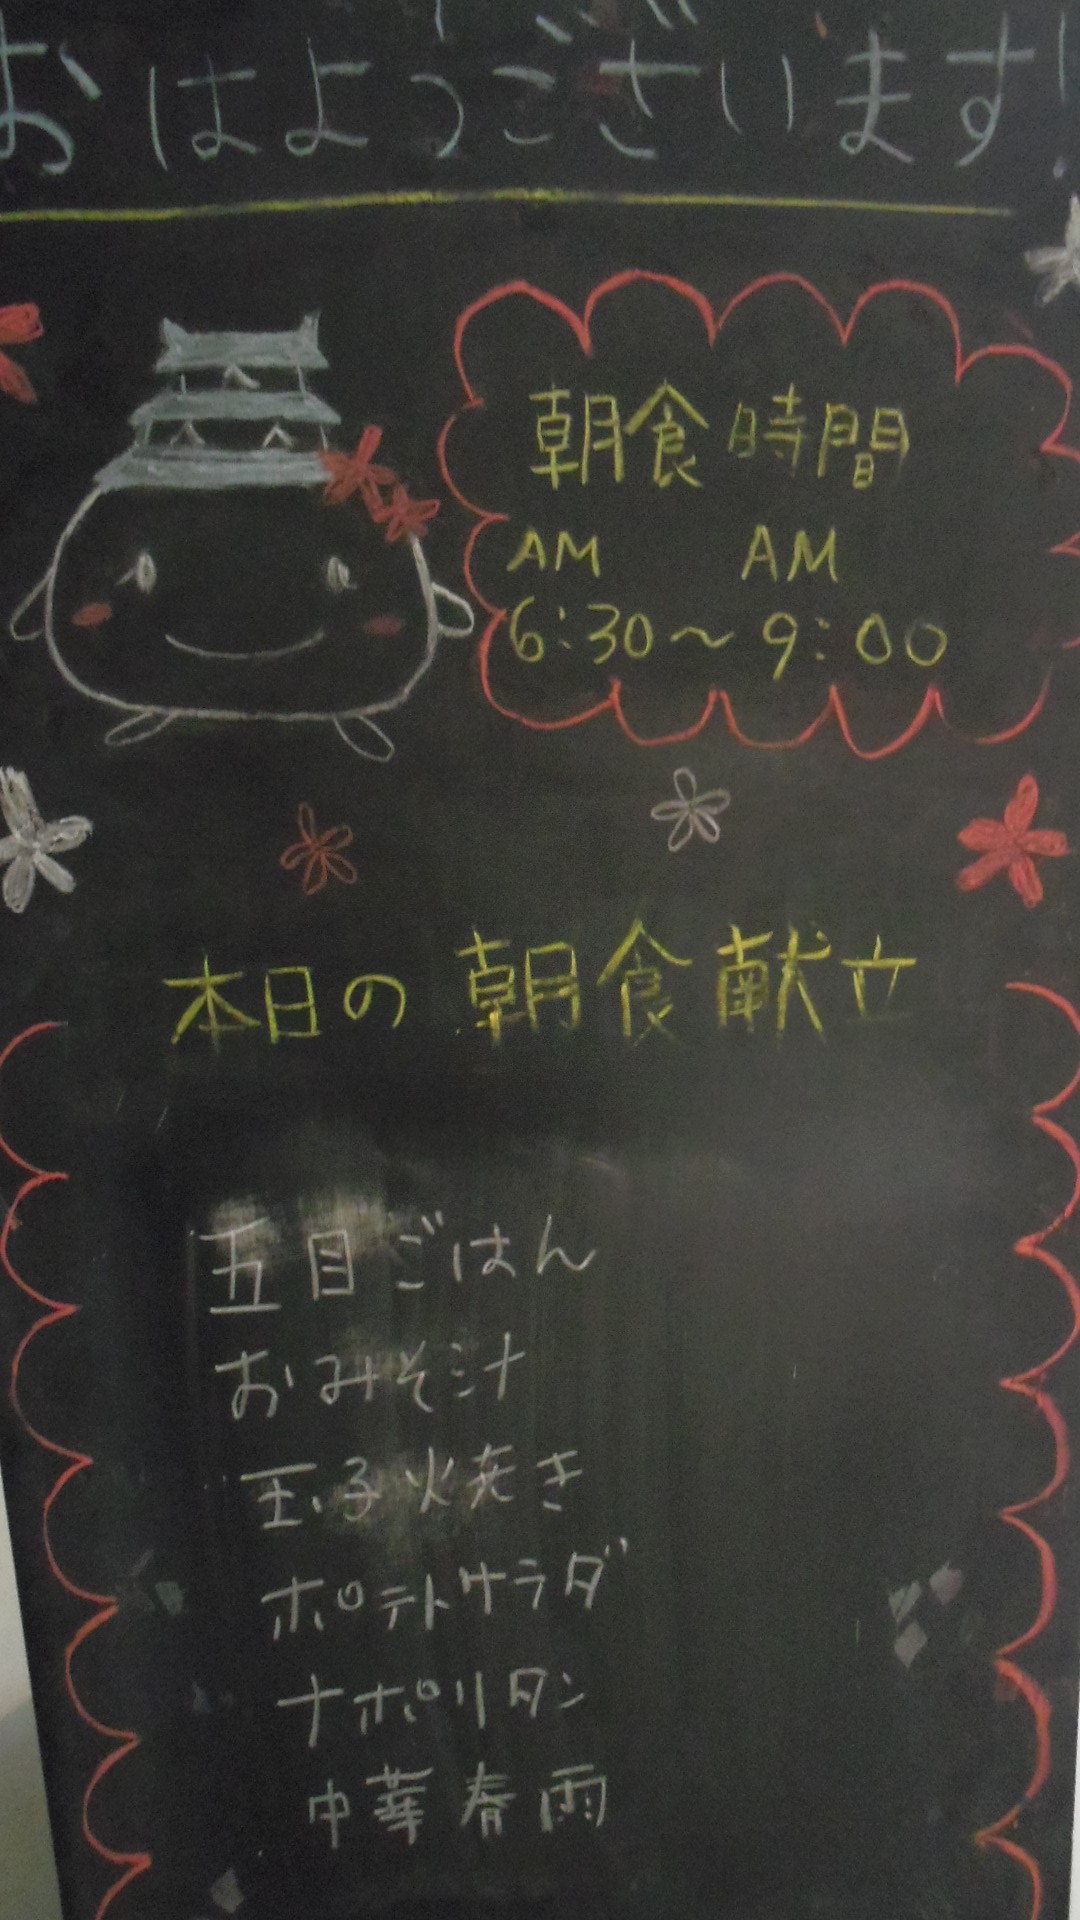 おはようございます!
朝食時間
AM AM
6:30～9:00
本日の朝食献立
五目ごはん
おみそ汁
玉子焼き
ポテトサラダ
ナポリタン
中華春雨